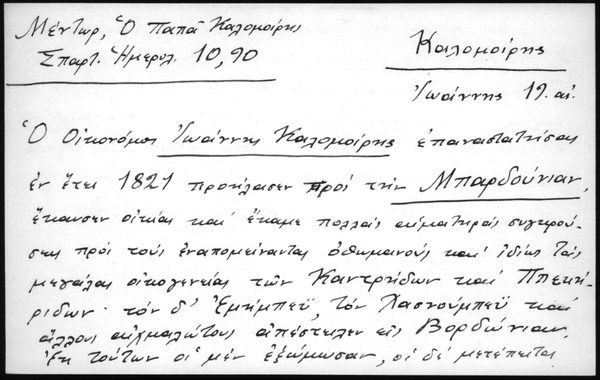 Μέντωρ, Ὁ Παπᾶ Καλομοίρης
Σπαρτ. Ἡμερολ. 10,90
Καλομοίρης
Ἰωάννης 19. αἰ.
Ὁ Οἰκονόμος Ἰωάννης Καλομοίρης ἐπαναστατήσας
ἐν ἔτει 1821 προήλασεν πρὸς τὴν Μπαρδούνιαν,
ἔκαυσεν οἰκίας καὶ ἔκαμε πολλὰς αἱματηρὰς συγκρού-
σεις πρὸς τοὺς ἐναπομείναντας ὀθωμανοὺς καὶ ἰδίως τὰς
μεγάλας οἰκογενείας τῶν Καντρήδων καὶ Μπεκη-
ρίδων· τὸν δ' Ἐμήμπεϋ, τὸν Χασνούμπεϋ καὶ
ἄλλους αἰχμαλώτους ἀπέστειλεν εἰς Βορδώνιαν.
Ἐκ τούτων οἱ μὲν ἐξώμωσαν, οἱ δὲ μετέπειτα